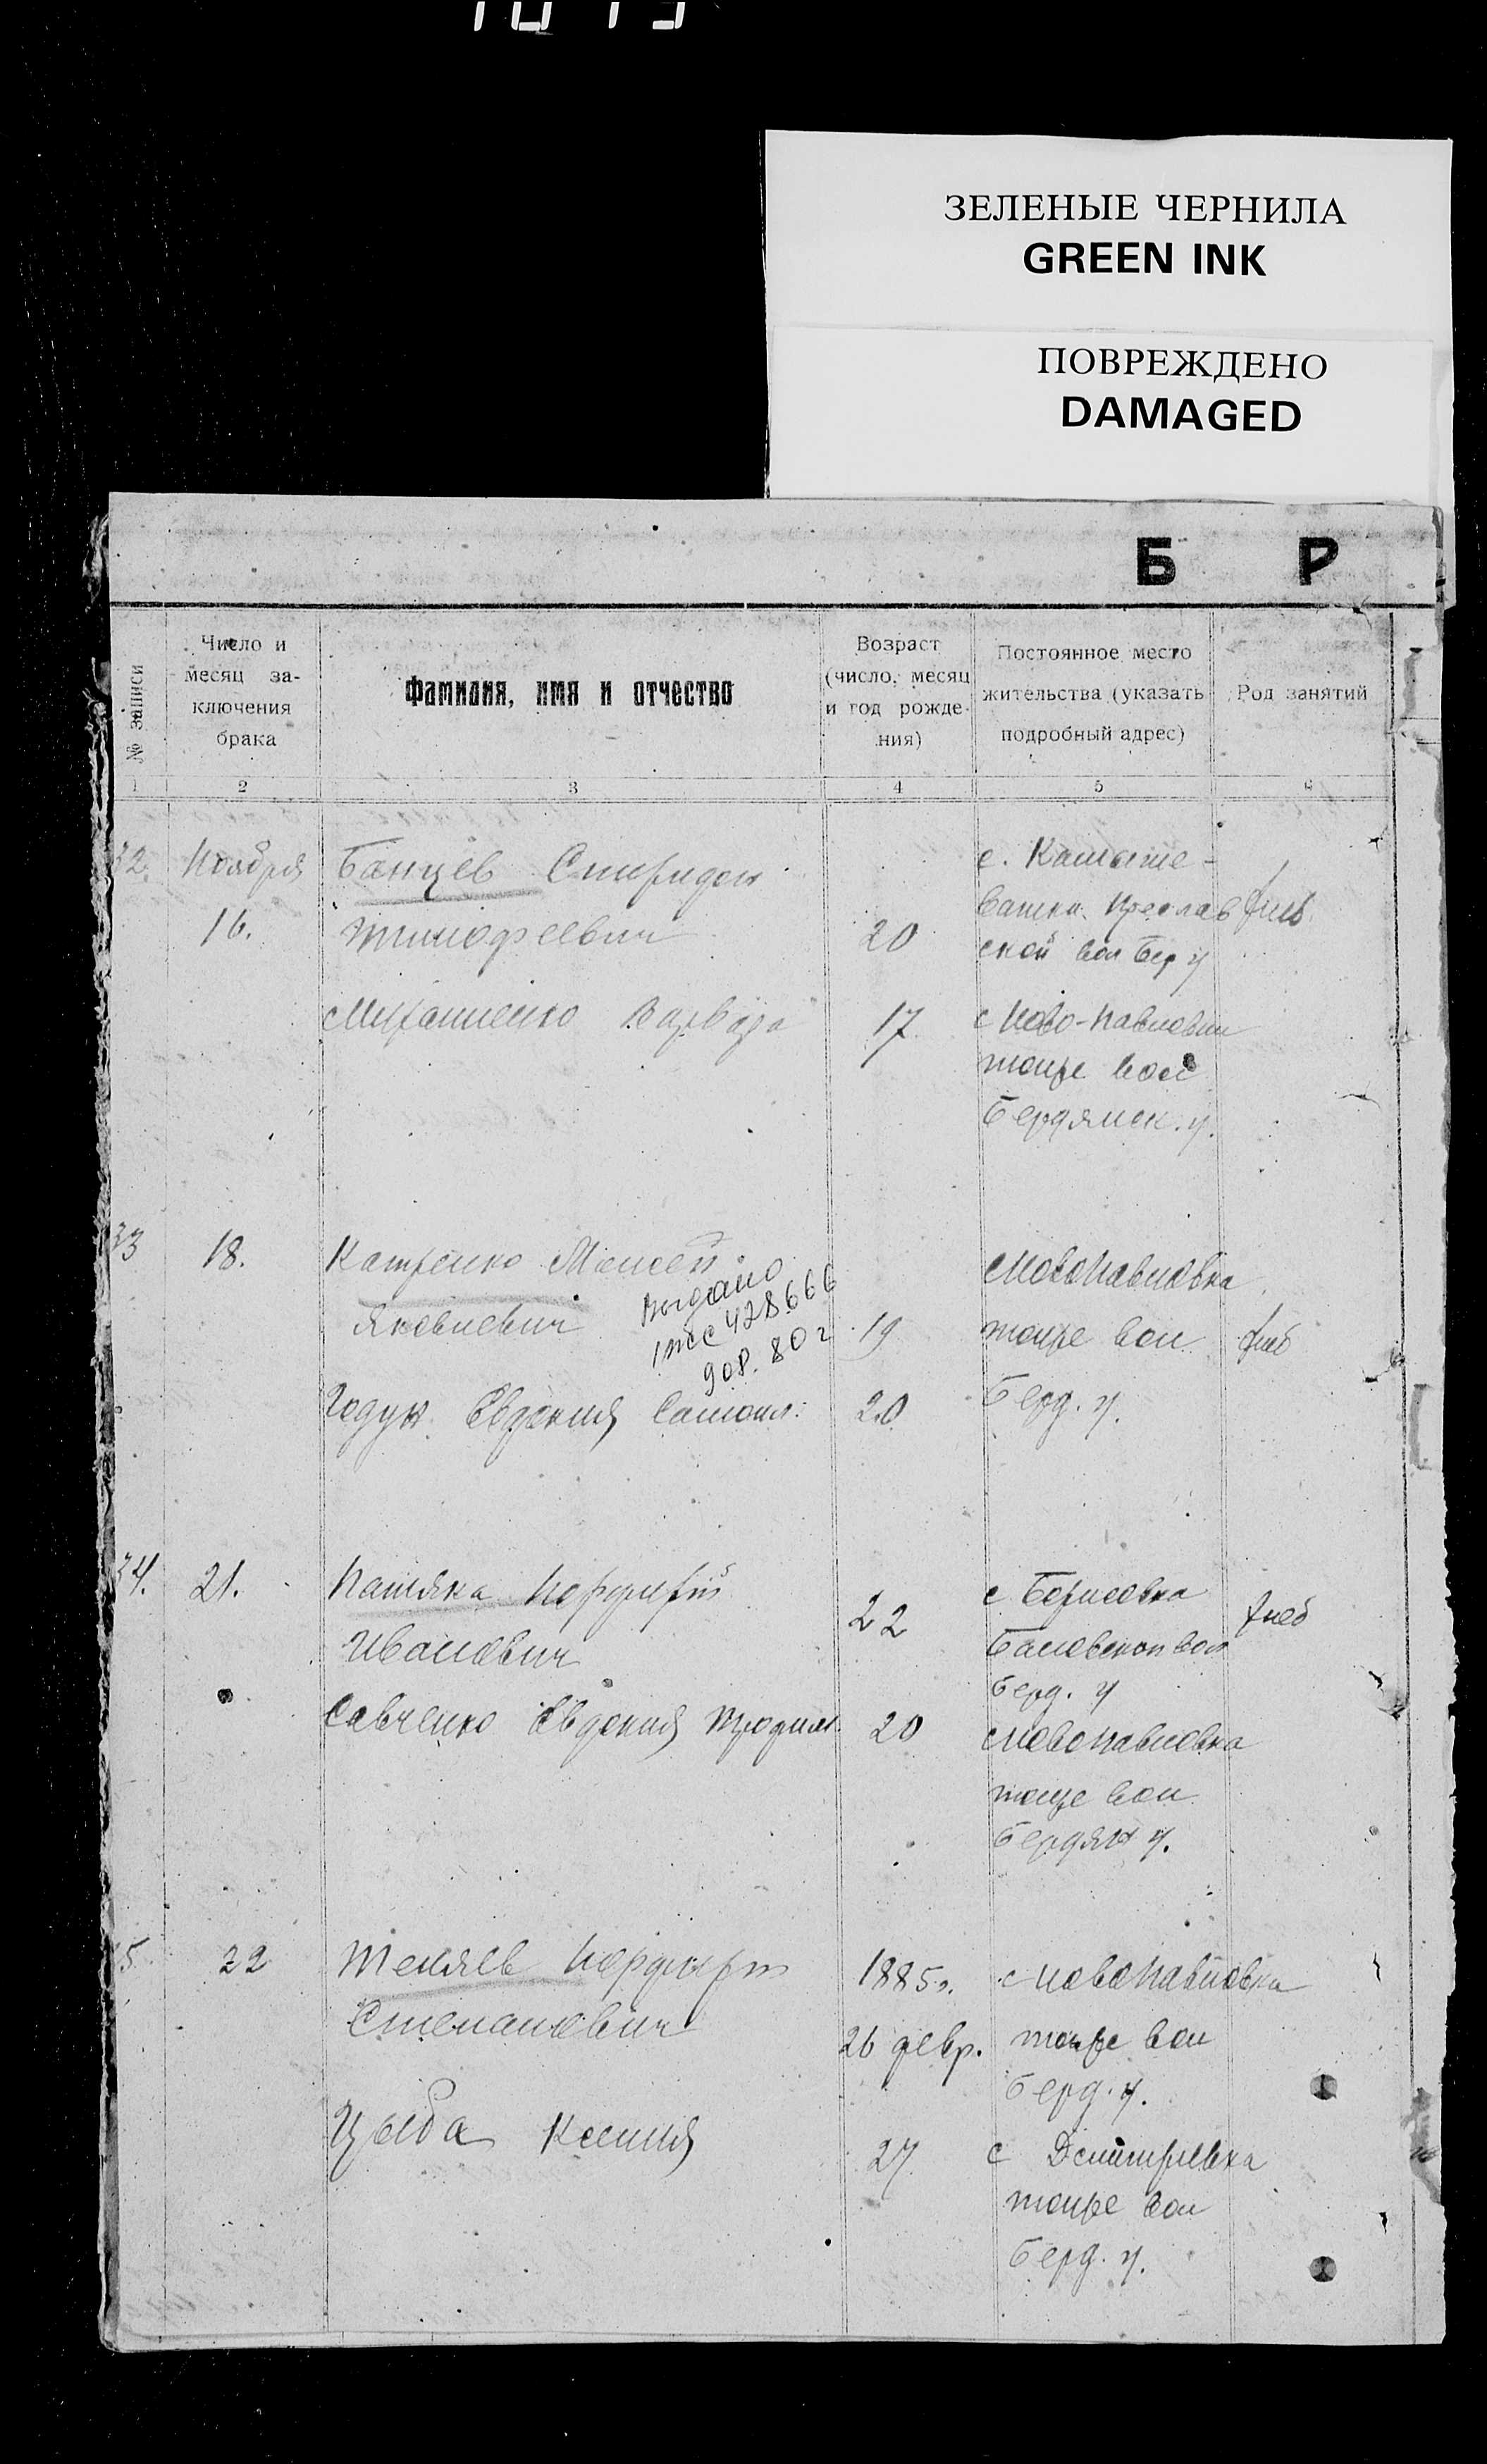 ЗЕЛЕНЫЕ ЧЕРНИЛА
GREEN INK
ПОВРЕЖДЕНО
DAMAGED
Б Р
№ записи
Число и
месяц за-
ключения
брака
Фамилия, имя и отчество
Возраст
(число, месяц
и год рожде-
ния)
Постоянное место
жительства (указать
подробный адрес)
Род занятий
1 2 3 4 5 6
32. Ноября Банцев Спиридон
16. Тимофеевич 20
с. Камыше-
ской вол Бер у
Варвара 17
с Ново-Павловки
тоиже вол
Бердянск. у.
33 18. Катренко Моисей
Яковлевич 19
Выдано
428666
908. 80 г
Евдокия Самоил: 20
с НовоПавловка
тоиже вол
Берд. у.
хлеб
34. 21. Порфирий
Иванович 22
с Борисовка
вол
Берд. у
хлеб
Савченко Евдокия Трофим. 20
с НовоПавловка
тоиже вол
Бердян у.
5. 22 Тепляев Порфирий
Степанович
1885г.
26 февр.
с НовоПавловка
тоиже вол
Берд. у.
Цыба Ксения 27
с Дмитриевка
тоиже вол
Берд. у.